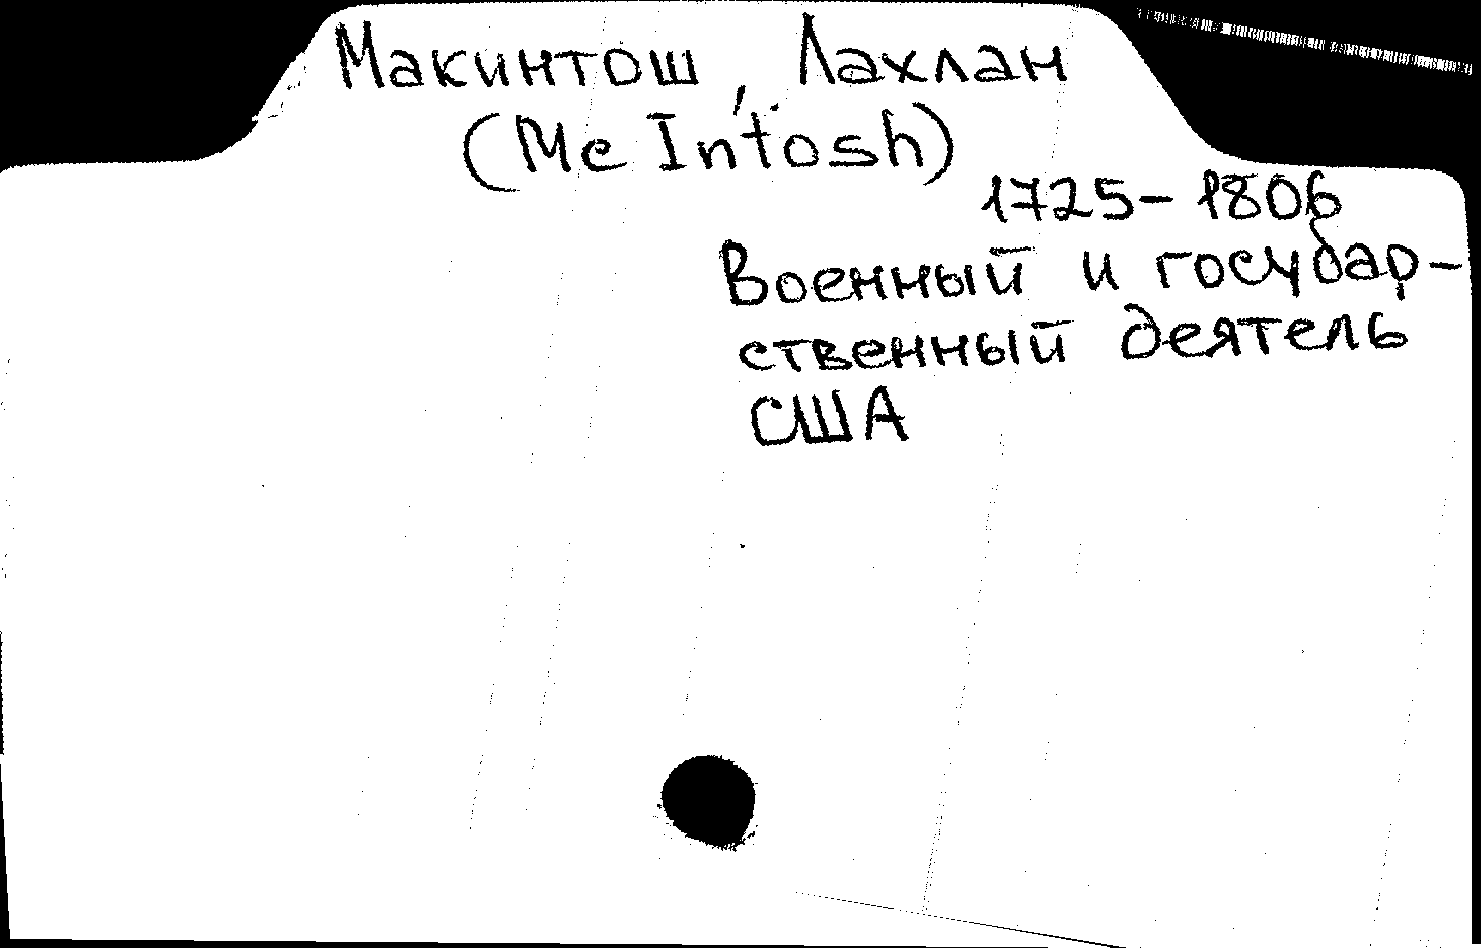 Макинтош, Лахлан
(Mc Intosh)
1725-1806
Военный и государ-
ственный деятель
США